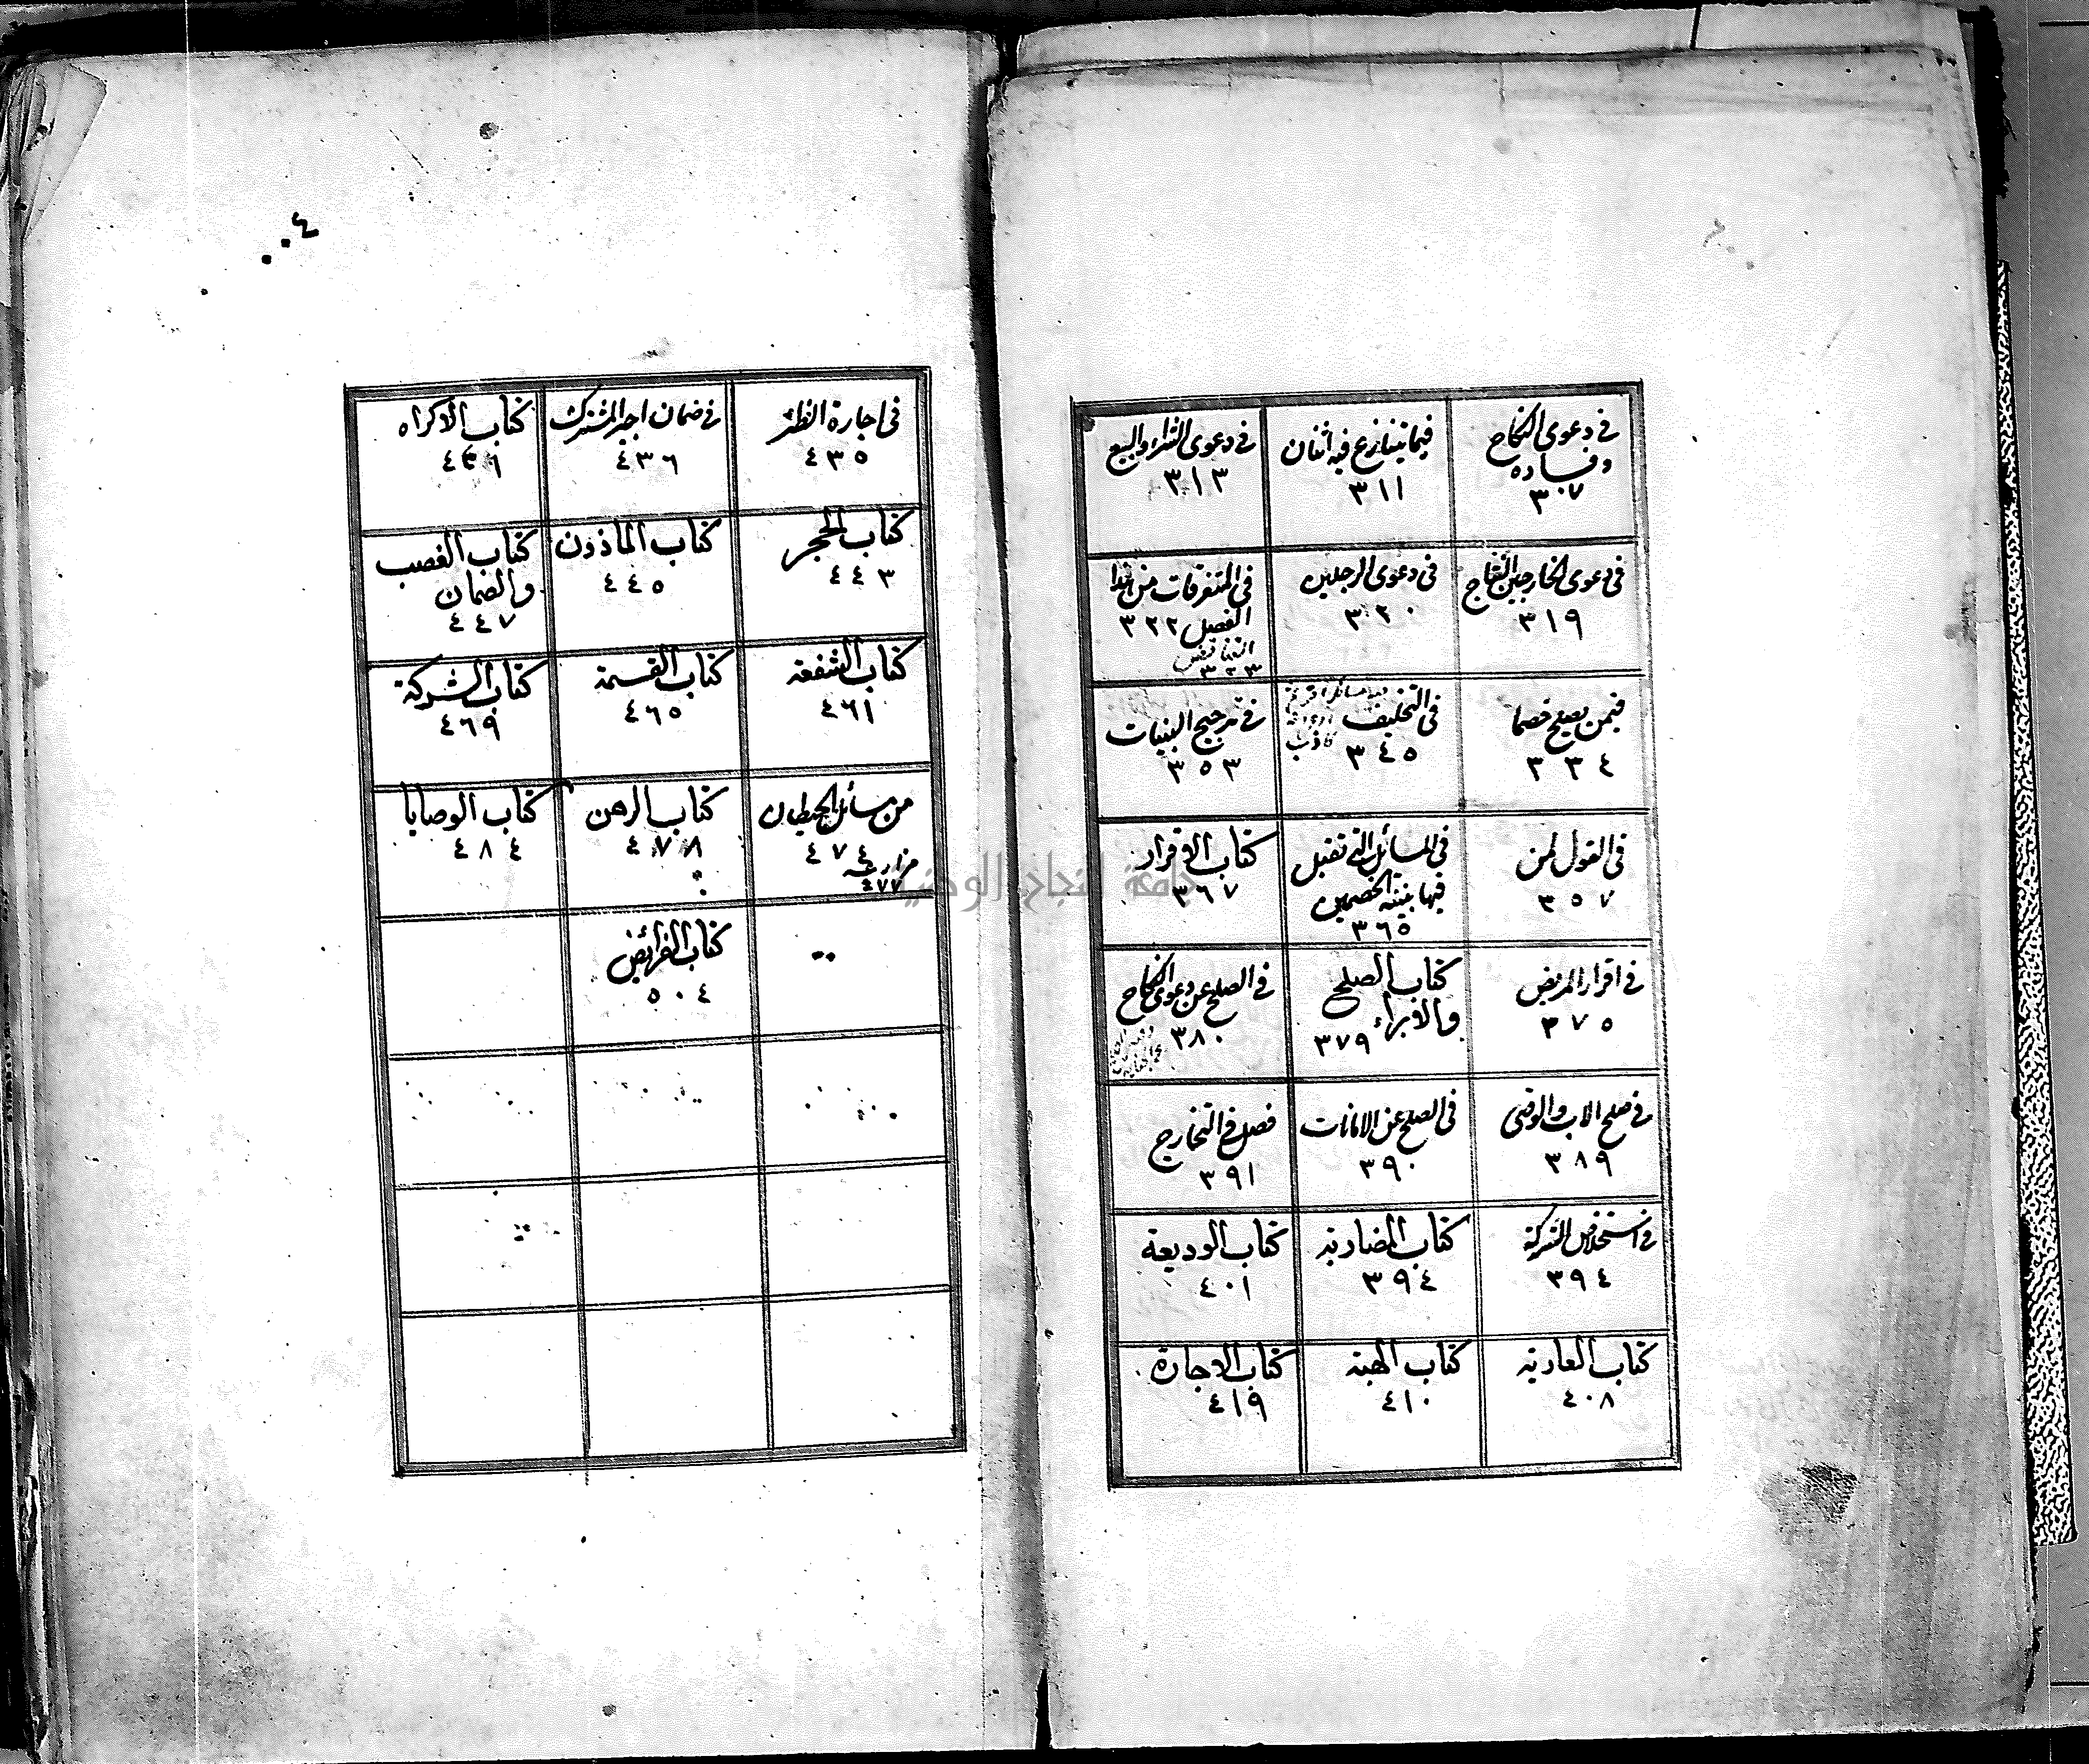 في دعوى النكاح
وفساده
٣٠٧
فيما يتنازع فيه اثنان
٣١١
في دعوى الشراء والبيع
٣١٣
في دعوى الخارجين النتاج
٣١٩
في دعوى الرجلين
٣٢٠
في المتفرقات من هذا
الفصل ٣٢٢
التناقض
٣٢٣
فيمن يصلح خصما
٣٣٤
في التحليف
٣٤٥
في ترجيح البينات
٣٥٣
في القول لمن
٣٥٧
في المسائل التي تقبل
فيها بينة الخصمين
٣٦٥
كتاب الاقرار
٣٦٧
في اقرار المريض
٣٧٥
كتاب الصلح
والابراء ٣٧٩
في الصلح عن دعوى النكاح
٣٨٠
في صلح الاب والوصي
٣٨٩
في الصلح عن الامانات
٣٩٠
فصل في التخارج
٣٩١
في استخلاص الشركة
٣٩٤
كتاب المضاربة
٣٩٤
كتاب الوديعة
٤٠١
كتاب العارية
٤٠٨
كتاب الهبة
٤١٠
كتاب الاجارة
٤١٩
٤٠٠
في اجارة الظئر
٤٣٥
في ضمان اجير المشترك
٤٣٦
كتاب الاكراه
كتاب الحجر
٤٤٣
كتاب الماذون
٤٤٥
كتاب الغصب
والضمان
٤٤٧
كتاب الشفعة
٤٦١
كتاب القسمة
٤٦٥
كتاب الشركة
٤٦٩
من مسائل الحيطان
٤٧٤
مزارعة
٤٧٧
كتاب الرهن
٤٧٨
كتاب الوصايا
٤٨٤
كتاب الفرائض
٥٠٤
جامعة النجاح الوطنية